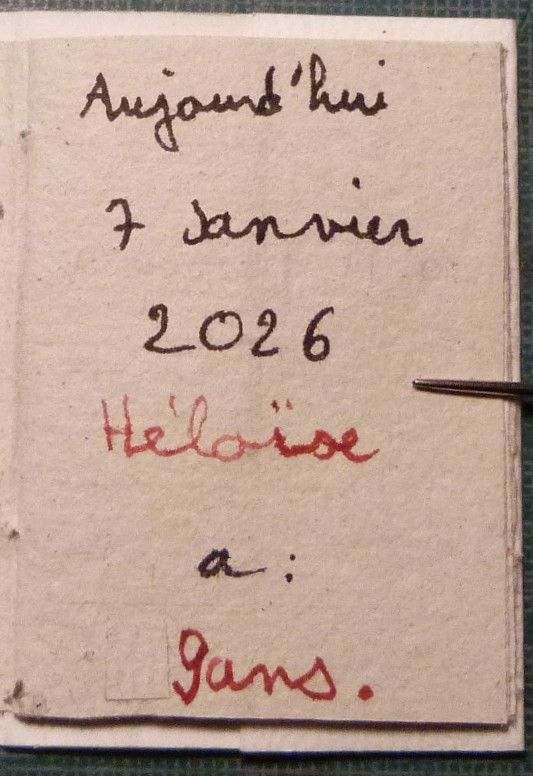 Aujourd'hui
7 Janvier
2026
Héloïse
a :
9ans.